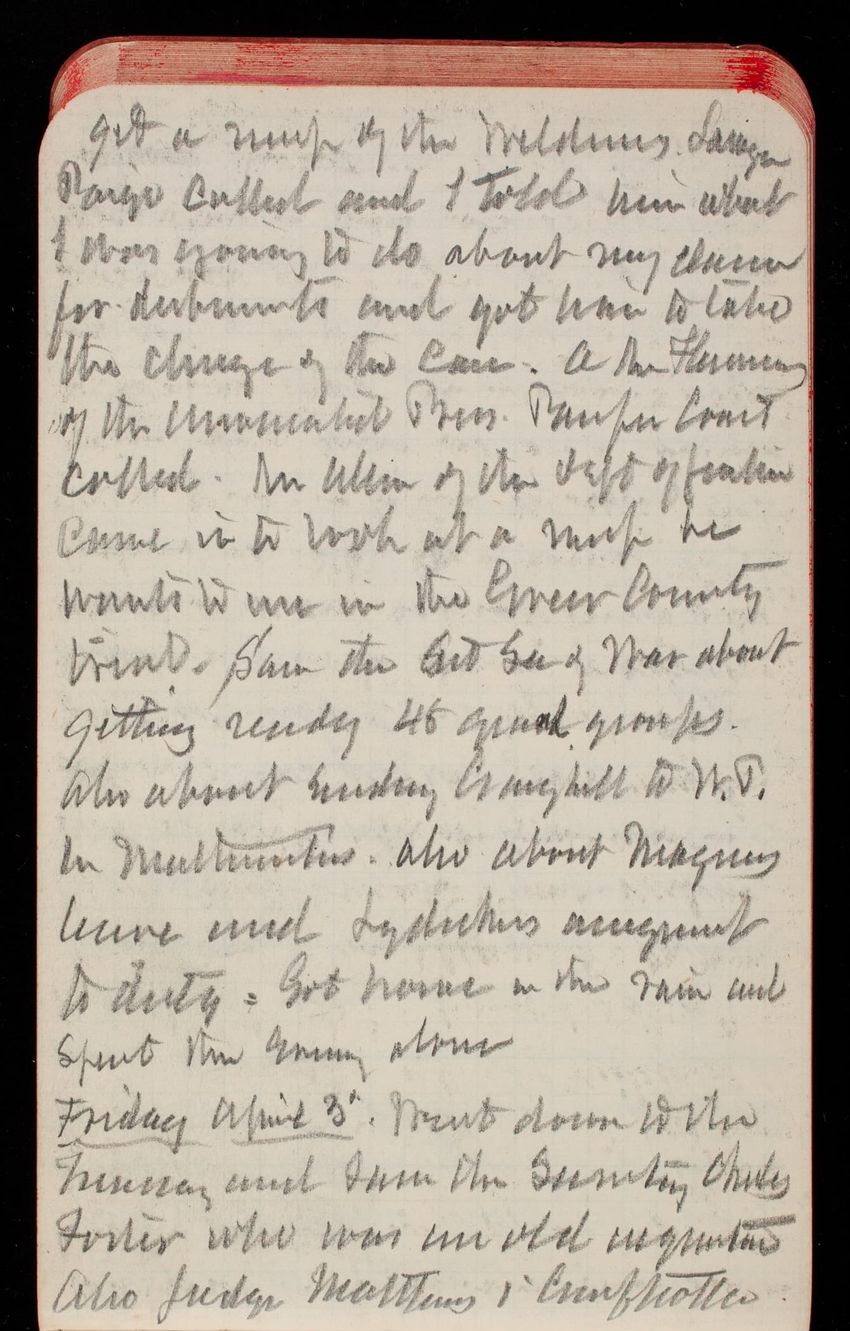 get a map of the Wilderness. Lawyer
Paige called and I told him what
I was going to do about my claim
for disbursements and got him to take
the charge of the Case. A Mr Flemming
of the Associated Press. Pacific Coast
Called. Mr Allen of the Dept of Justice
Came in to look at a map he
wants to use in the Greer County
trial. Saw the Act Sec of War about
getting ready 48 groups.
Also about sending Craighill to W.P.
in Mathematics. also about Maguires
leave and Lydeckers assignment
to duty = Got home in the rain and
Spent the Evening alone
Friday April 3d. Went down to the
Treasury and Saw the Secretary Charles
Foster who was an old acquaintance
Also Judge Matthews &